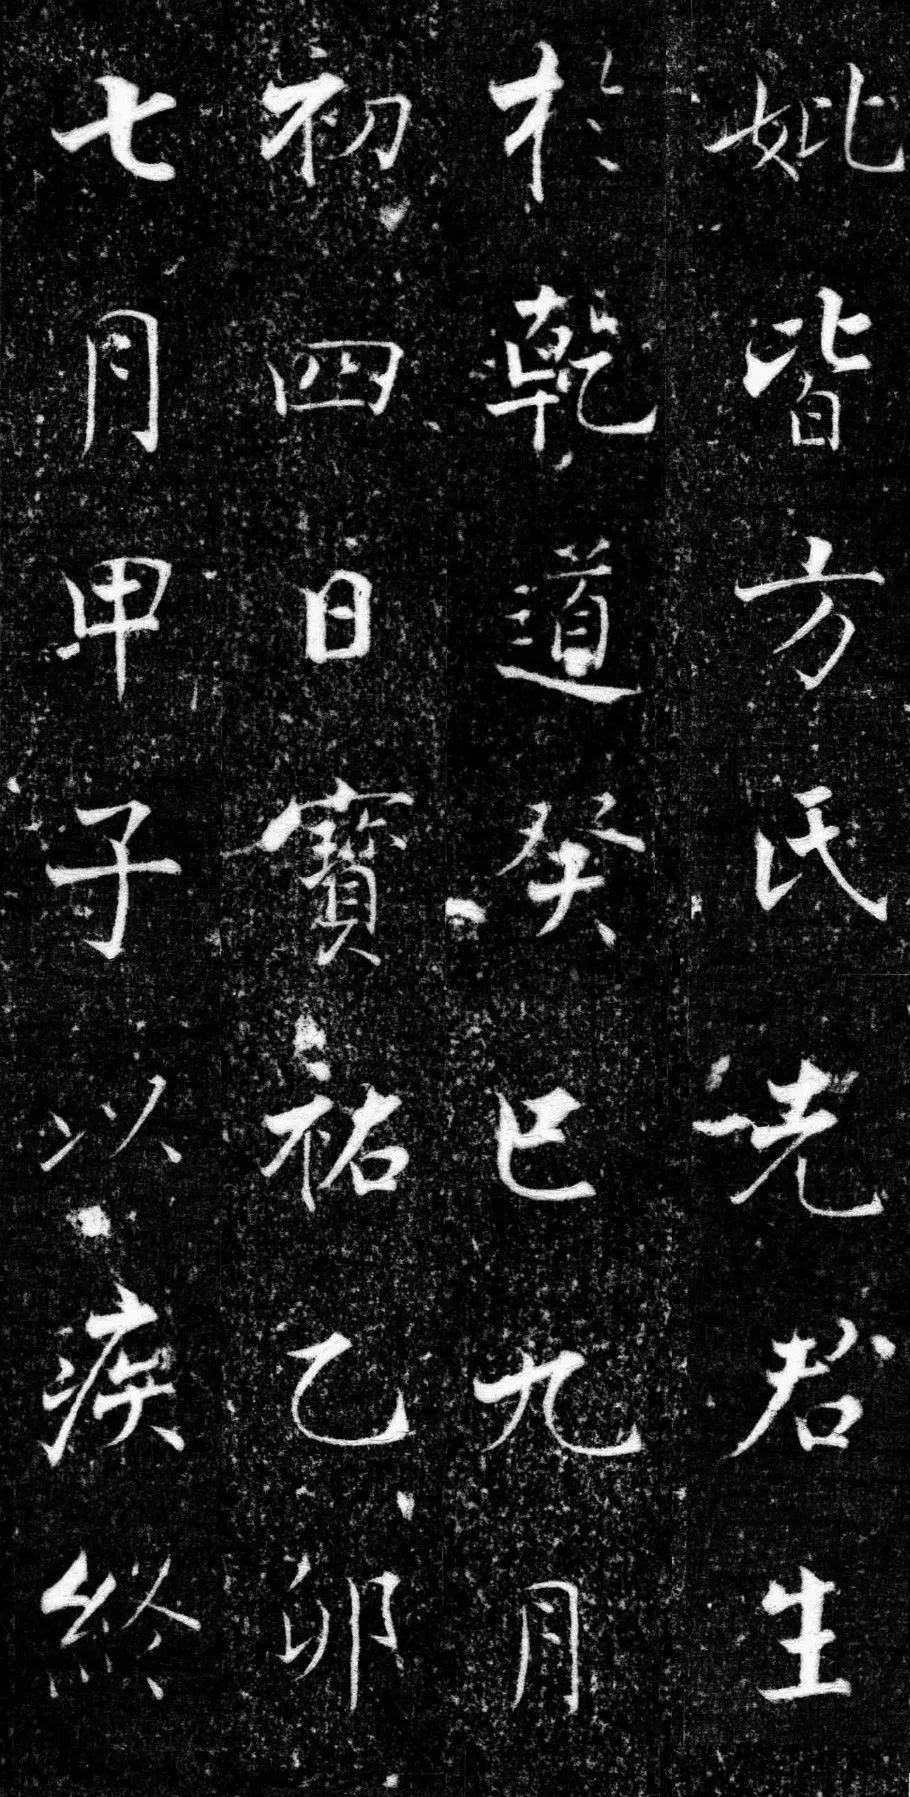 妣皆方氏先君生
於乾道癸巳九月
初四日寶祐乙卯
七月甲子以疾終